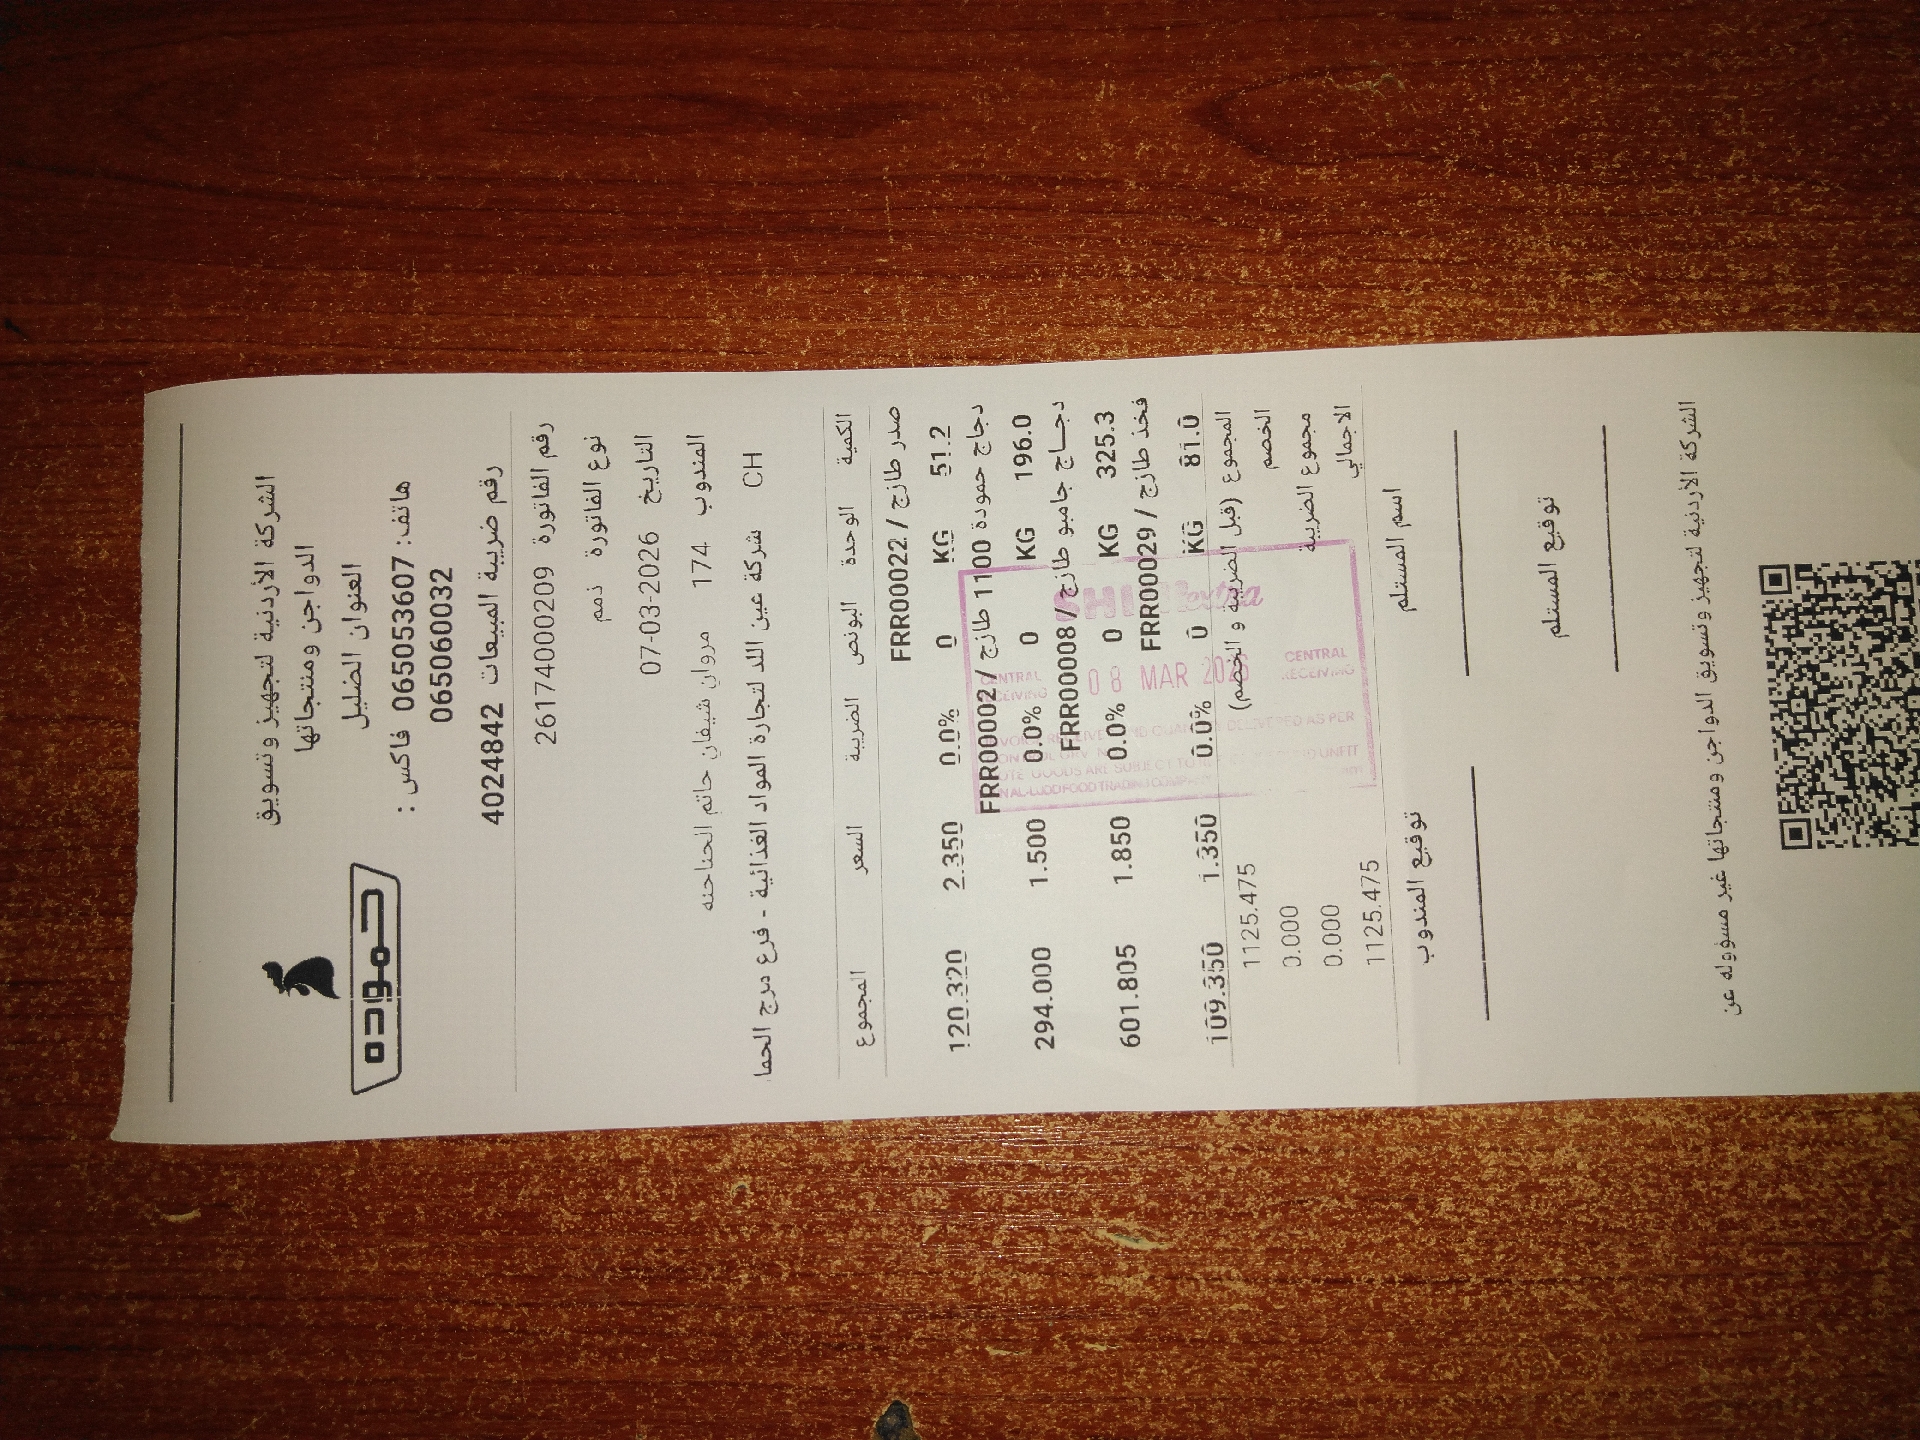 الشركة الأردنية لتجهيز وتسويق
الدواجن ومنتجاتها
العنوان الضليل
هاتف: 065053607 فاكس :
065060032
رقم ضريبة المبيعات 4024842
حموده
رقم الفاتورة 26174000209
نوع الفاتورة ذمم
التاريخ 07-03-2026
المندوب 174 مروان شيفان حاتم الحناحنه
CH شركة عين اللد لتجارة المواد الغذائية - فرع مرج الحما
الكمية الوحدة البونص الضريبة السعر المجموع
صدر طازج / FRR00022
51.2 KG 0 0.0% 2.350 120.320
دجاج حمودة 1100 طازج / FRR00002
196.0 KG 0 0.0% 1.500 294.000
دجاج جامبو طازج / FRR00008
325.3 KG 0 0.0% 1.850 601.805
فخذ طازج / FRR00029
81.0 KG 0 0.0% 1.350 109.350
المجموع (قبل الضريبة و الخصم) 1125.475
الخصم 0.000
مجموع الضريبة 0.000
الاجمالي 1125.475
CENTRAL
08 MAR 2026
CENTRAL
RECEIVING
اسم المستلم
توقيع المندوب
توقيع المستلم
الشركة الاردنية لتجهيز وتسويق الدواجن ومنتجاتها غير مسؤوله عن